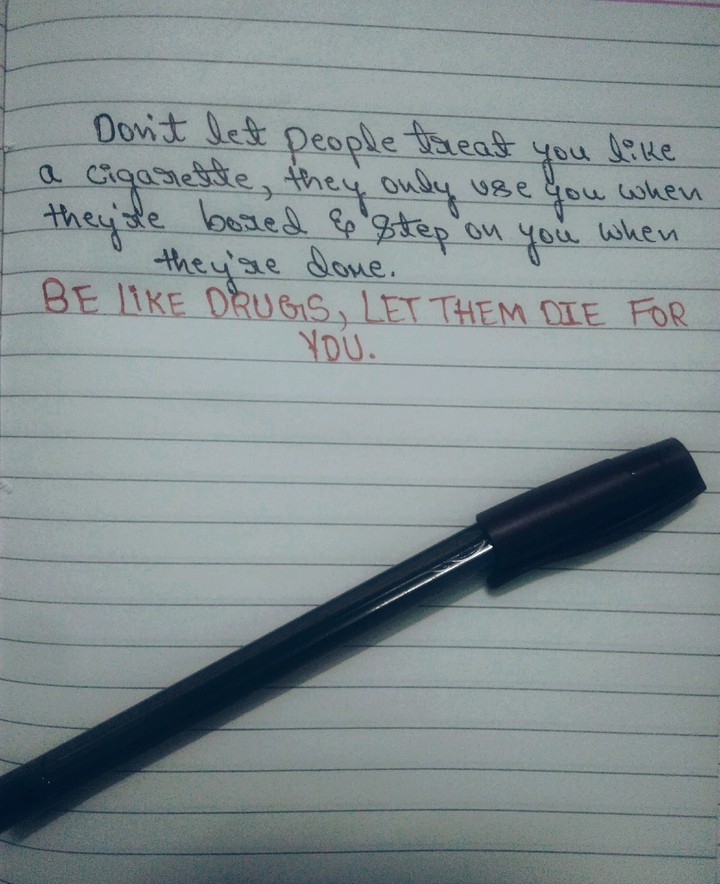 Don't let people treat you like
a cigarette, they only use you when
they're bored & step on you when
they're done.
BE LIKE DRUGS, LET THEM DIE FOR
YOU.